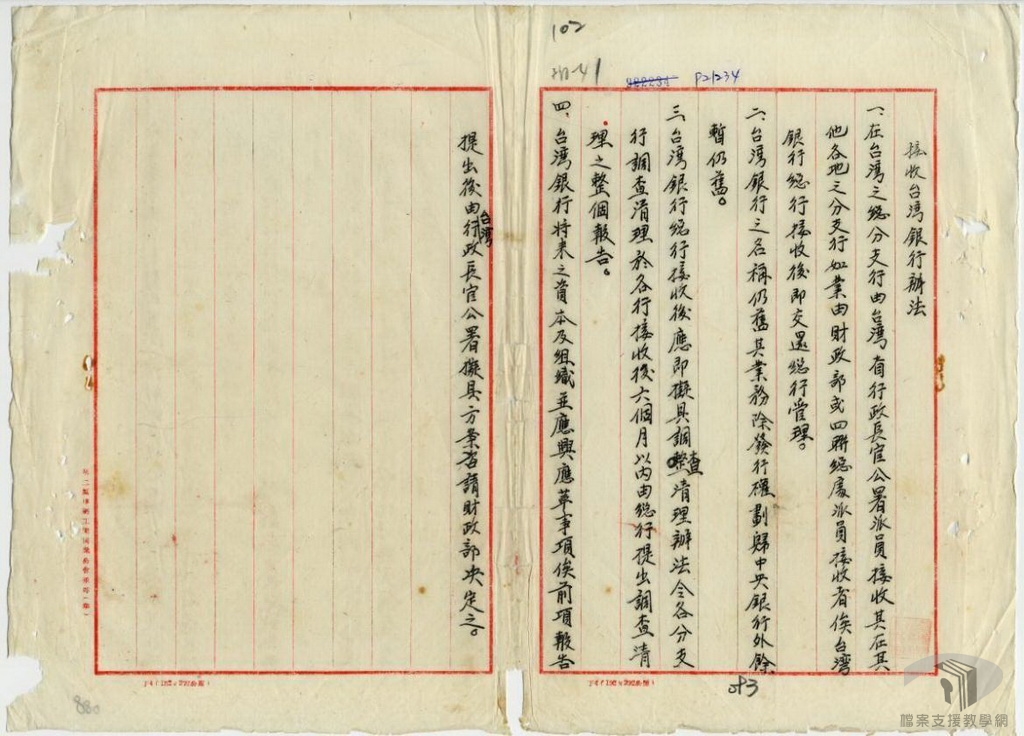 102
P21234
接收台湾銀行辦法
一、在台湾之總分支行由台湾省行政長官公署派員接收其在其
他各地之分支行如業由財政部或四聯總處派員接收者俟台湾
銀行總行接收後即交還總行管理。
二、台湾銀行之名稱仍舊其業務除發行權劃歸中央銀行外餘
暫仍舊。
三、台湾銀行總行接收後應即擬具調查清理辦法令各分支
行調查清理於各行接收後六個月以內由總行提出調查清
理之整個報告。
四、台湾銀行將来之資本及組織並應興應革事項俟前項報告
提出後由台湾行政長官公署擬具方案咨請財政部决定之。
880
檔案支援教學網